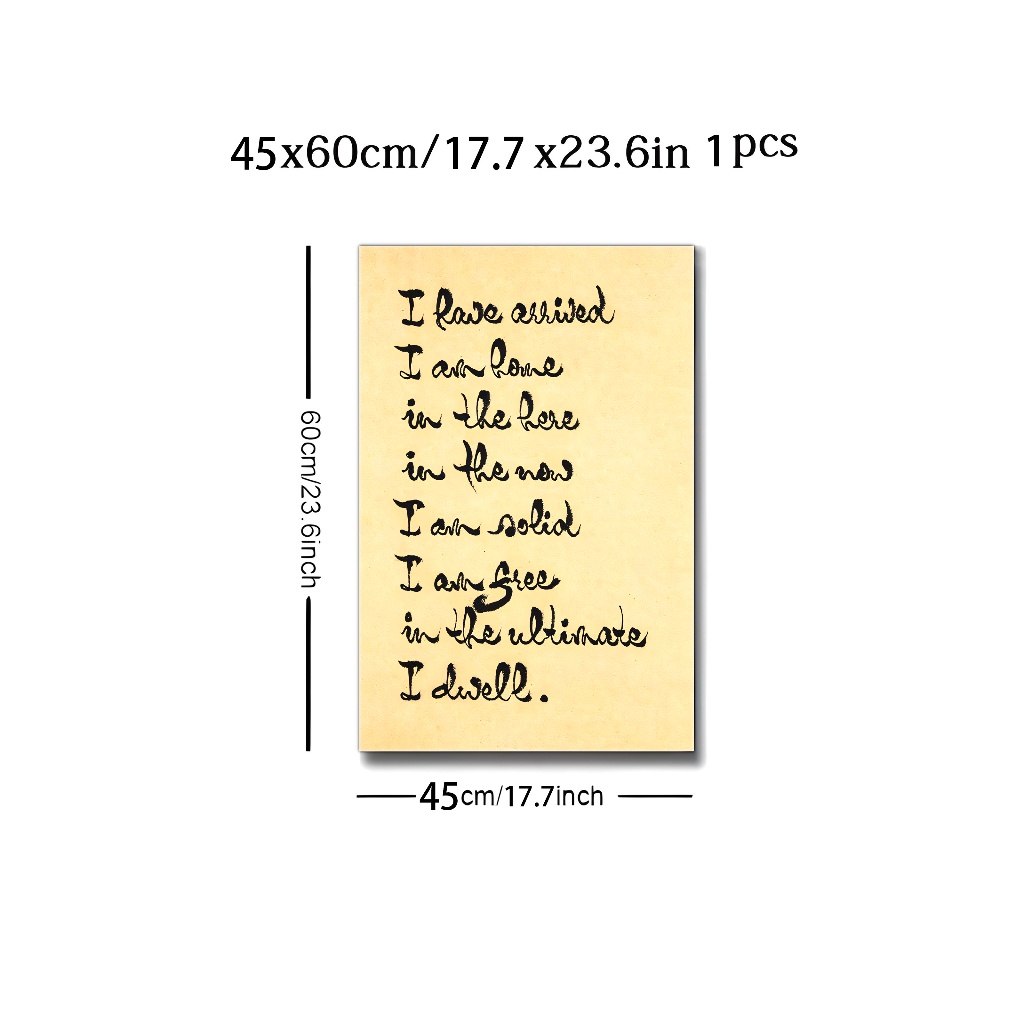 45x60cm/17.7 x23.6in 1pcs
60cm/23.6inch
I have arrived
I am home
in the here
in the now
I am solid
I am free
in the ultimate
I dwell.
45cm/17.7inch